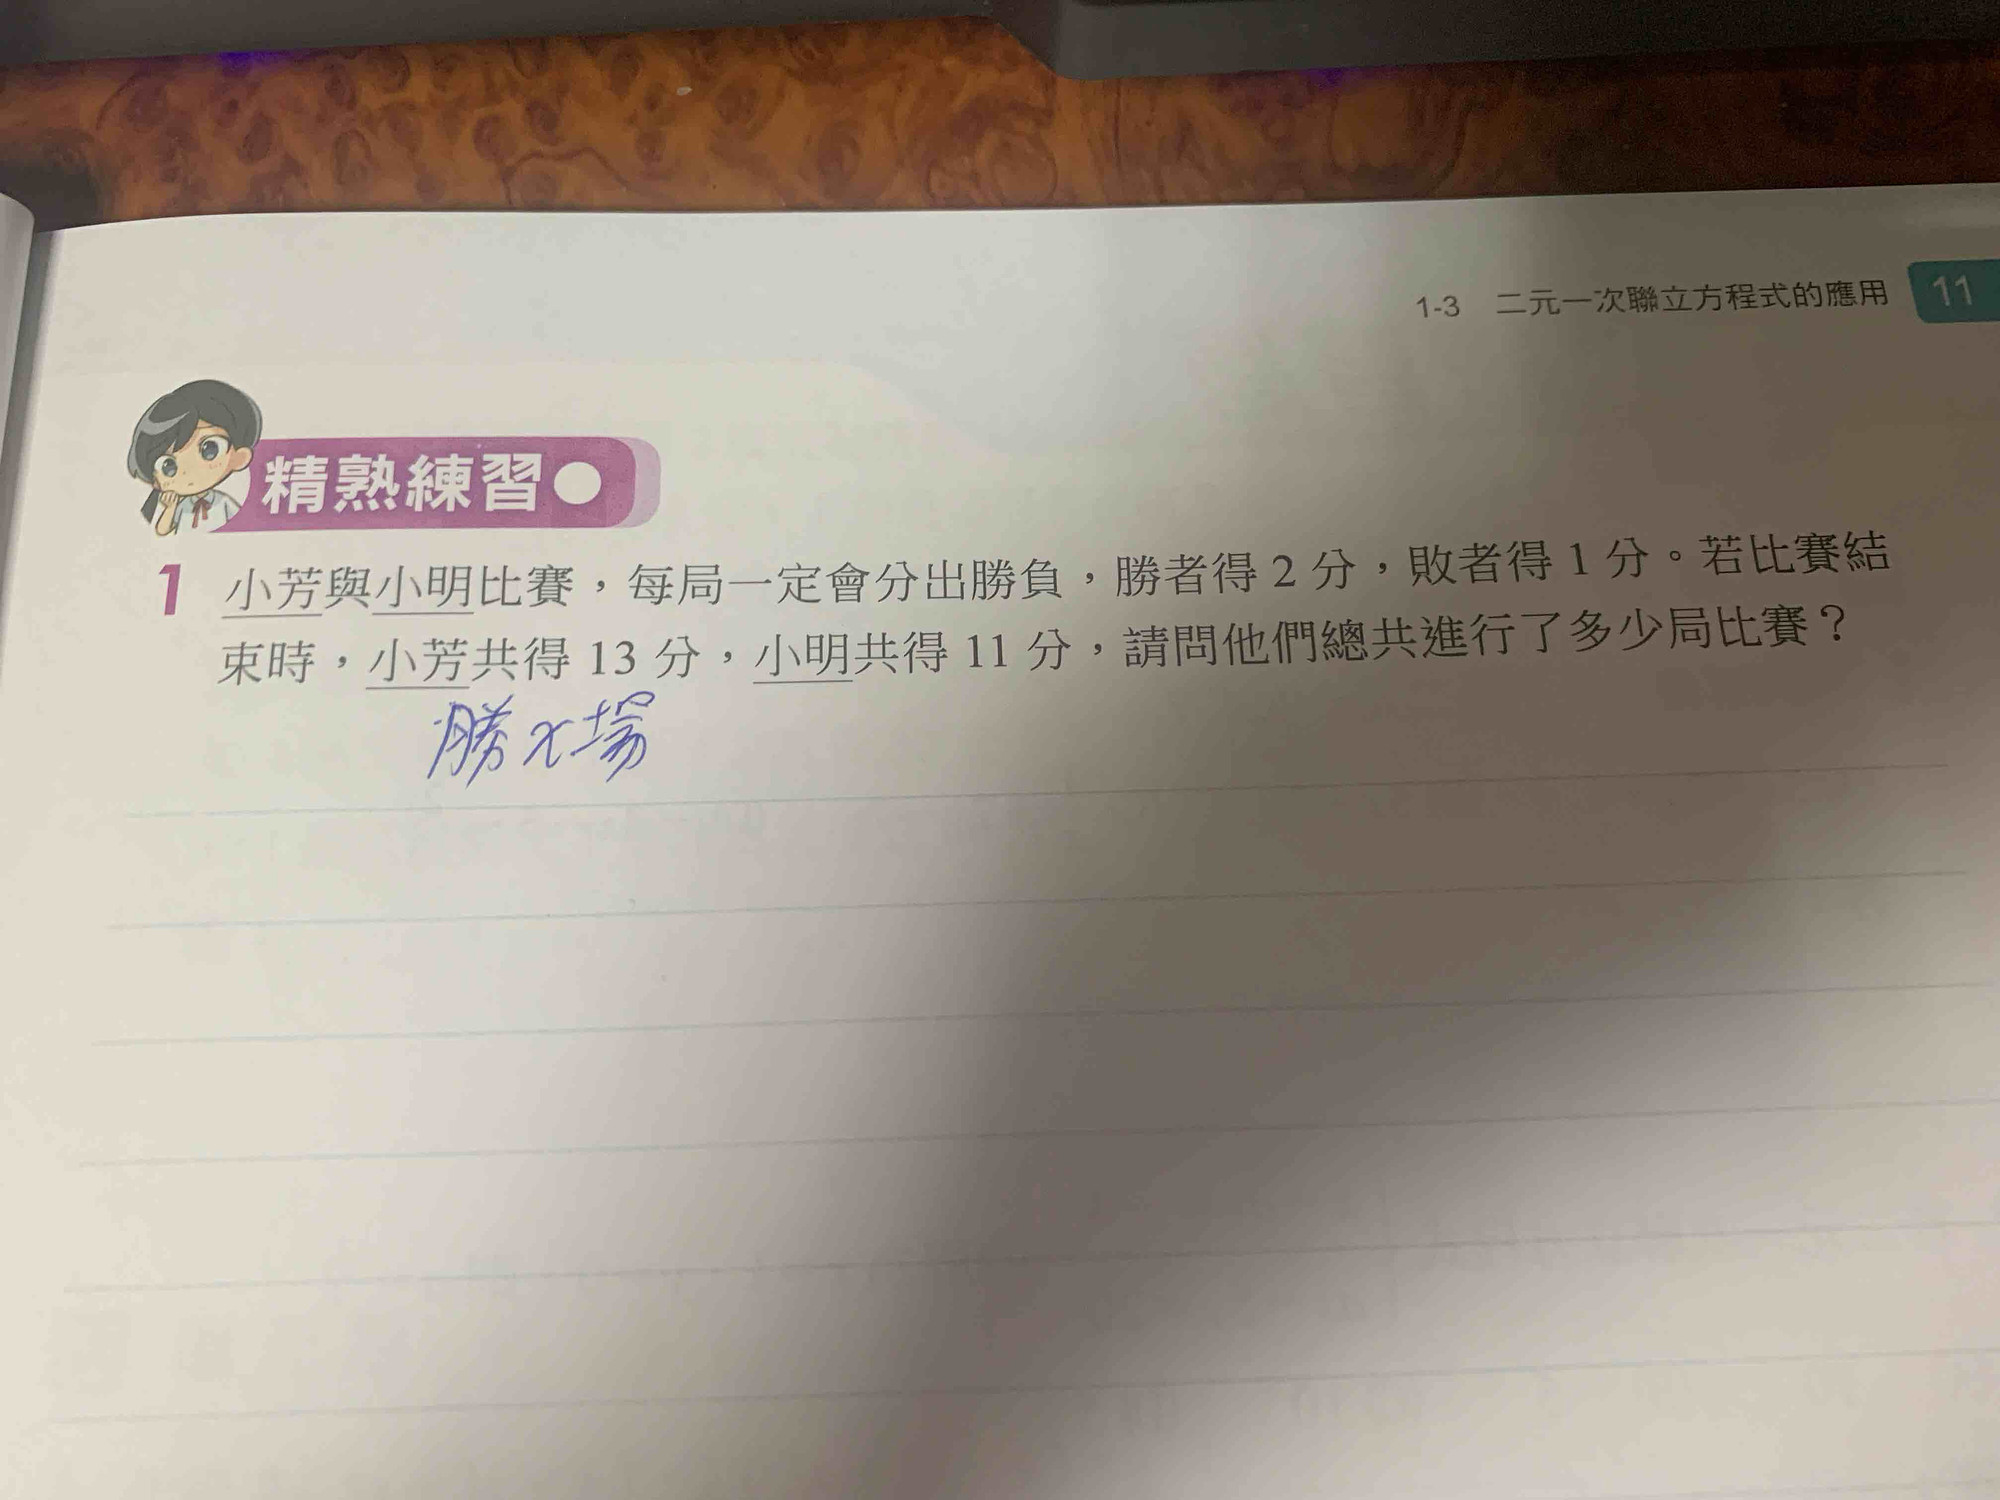 1-3 二元一次聯立方程式的應用 11
精熟練習
1 小芳與小明比賽，每局一定會分出勝負，勝者得 2 分，敗者得 1 分。若比賽結
束時，小芳共得 13 分，小明共得 11 分，請問他們總共進行了多少局比賽？
勝x場